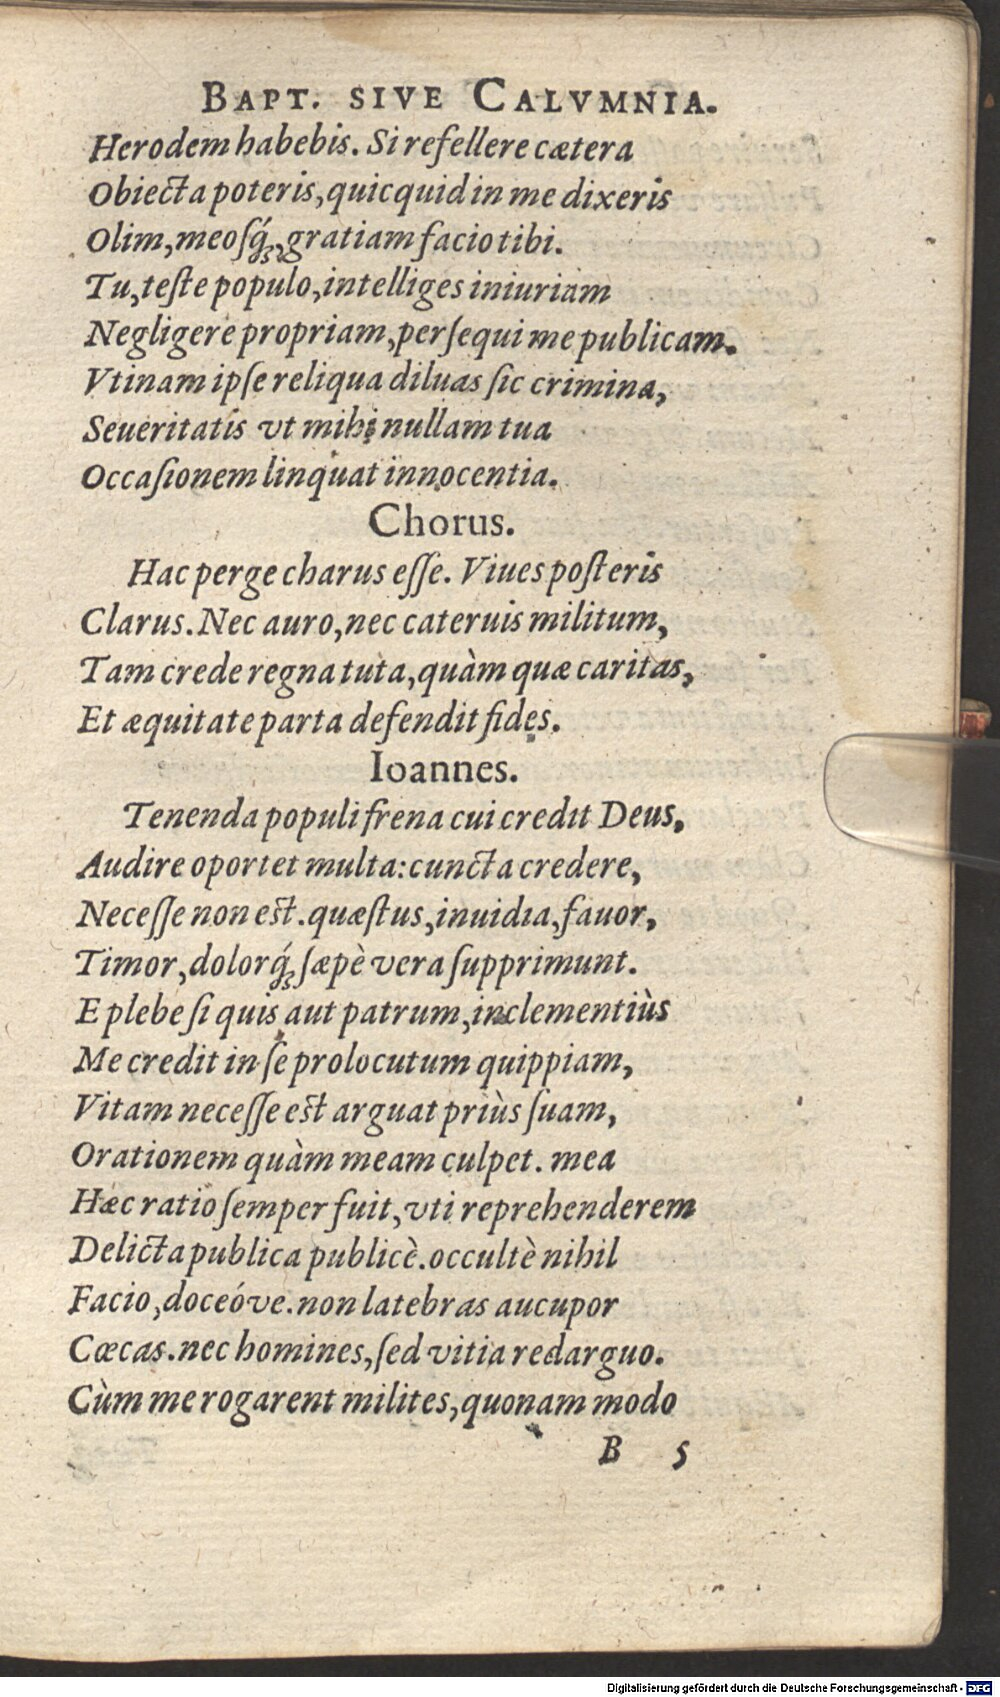 BAPT. SIVE CALVMNIA.
Herodem habebis. Si refellere cætera
Obiecta poteris, quicquid in me dixeris
Olim, meosq́ꝫ, gratiam facio tibi.
Tu, teste populo, intelliges iniuriam
Negligere propriam, persequi me publicam.
Vtinam ipse reliqua diluas sic crimina,
Seueritatis vt mihi nullam tua
Occasionem linquat innocentia.
Chorus.
Hac perge charus esse. Viues posteris
Clarus. Nec auro, nec cateruis militum,
Tam crede regna tuta, quàm quæ caritas,
Et æquitate parta defendit fides.
Ioannes.
Tenenda populi frena cui credit Deus,
Audire oportet multa: cuncta credere,
Necesse non est. quæstus, inuidia, fauor,
Timor, dolorq́ꝫ sæpè vera supprimunt.
E plebe si quis aut patrum, inclementiùs
Me credit in se prolocutum quippiam,
Vitam necesse est arguat priùs suam,
Orationem quàm meam culpet. mea
Hæc ratio semper fuit, vti reprehenderem
Delicta publica publicè. occultè nihil
Facio, doceóve. non latebras aucupor
Cœcas. nec homines, sed vitia redarguo.
Cùm me rogarent milites, quonam modo
B 5
Digitalisierung gefördert durch die Deutsche Forschungsgemeinschaft - DFG